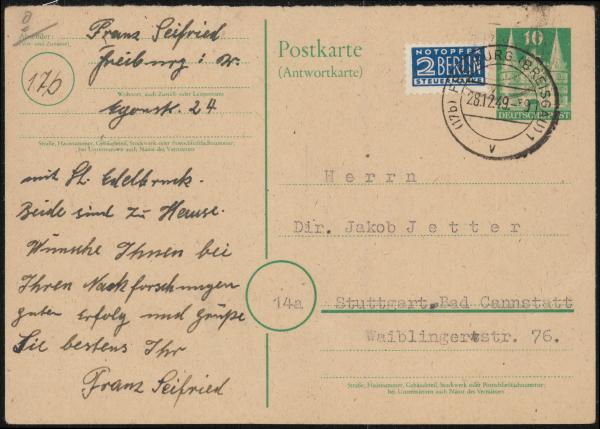 Absender:
Franz Seifried
(Vor- und Zuname)
17b
Freiburg i. Br.
Wohnort, auch Zustell- oder Leitpostamt
Egonstr. 24
Straße, Hausnummer, Gebäudeteil, Stockwerk oder Postschließfachnummer;
bei Untermietern auch Name des Vermieters
mit St.
Beide sind zu Hause.
Wünsche Ihnen bei
Ihren Nachforschungen
guten Erfolg und grüße
Sie bestens Ihr
Franz Seifried
Postkarte
(Antwortkarte)
NOTOPFER
2 BERLIN
STEUERMARKE
10
DEUTSCHE POST
(17b) FREIBURG (BREISGAU) 1
28.12.49
v
Herrn
Dir. Jakob Jetter
14a
Stuttgart, Bad Cannstatt
Waiblingerstr. 76.
Straße, Hausnummer, Gebäudeteil, Stockwerk oder Postschließfachnummer;
bei Untermietern auch Name des Vermieters